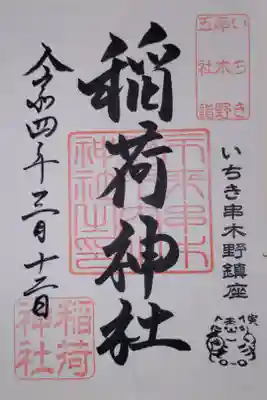 いちき
串木野
五社詣
いちき串木野鎮座
稲荷神社
令和四年三月十二日
稲荷
神社